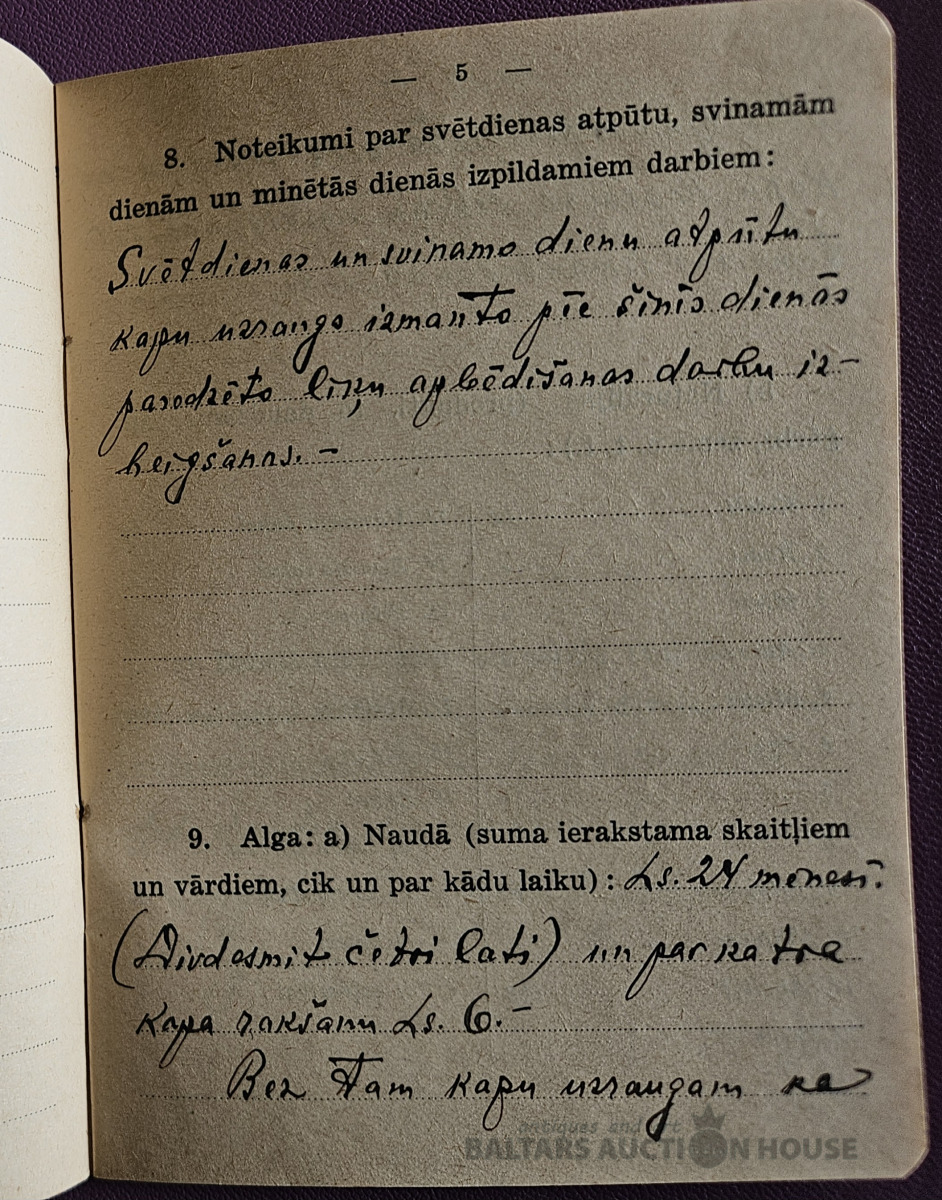 — 5 —
8. Noteikumi par svētdienas atpūtu, svinamām
dienām un minētās dienās izpildamiem darbiem:
Svētdienas un svinamo dienu atpūtu
kapu uzraugs izmanto pēc šinīs dienās
paredzēto līķu apbēdīšanas darbu iz-
beigšanas. —
9. Alga: a) Naudā (suma ierakstama skaitļiem
un vārdiem, cik un par kādu laiku): Ls. 24 mēnesī.
(Divdesmit četri lati) un par katra
kapa rakšanu Ls. 6. —
Bez tam kapu uzraugam
antiques and art
BALTARS AUCTION HOUSE